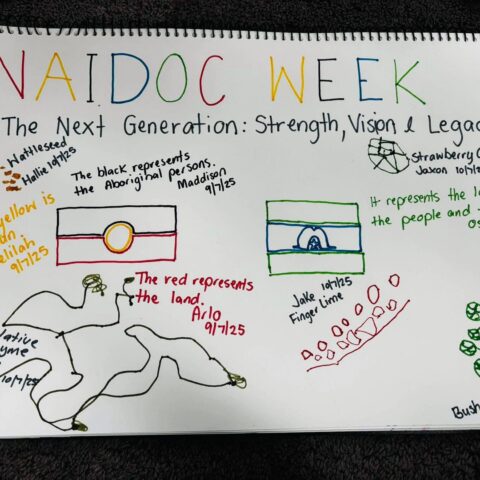 NAIDOC WEEK
The Next Generation: Strength, Vision & Legac
Wattleseed
Hallie 10/7/25
The black represents
the Aboriginal persons.
Maddison
9/7/25
Strawberry G
Jaxon 10/7/
yellow is
elilah
9/7/25
It represents the
the people and
The red represents
the land.
Arlo
9/7/25
Jake 10/7/25
Finger Lime
Native
10/7/25
Bush